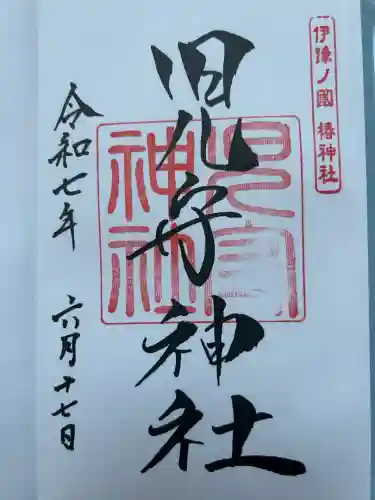 伊豫ノ國 椿神社
児守神社
児守神社
令和七年 六月十七日